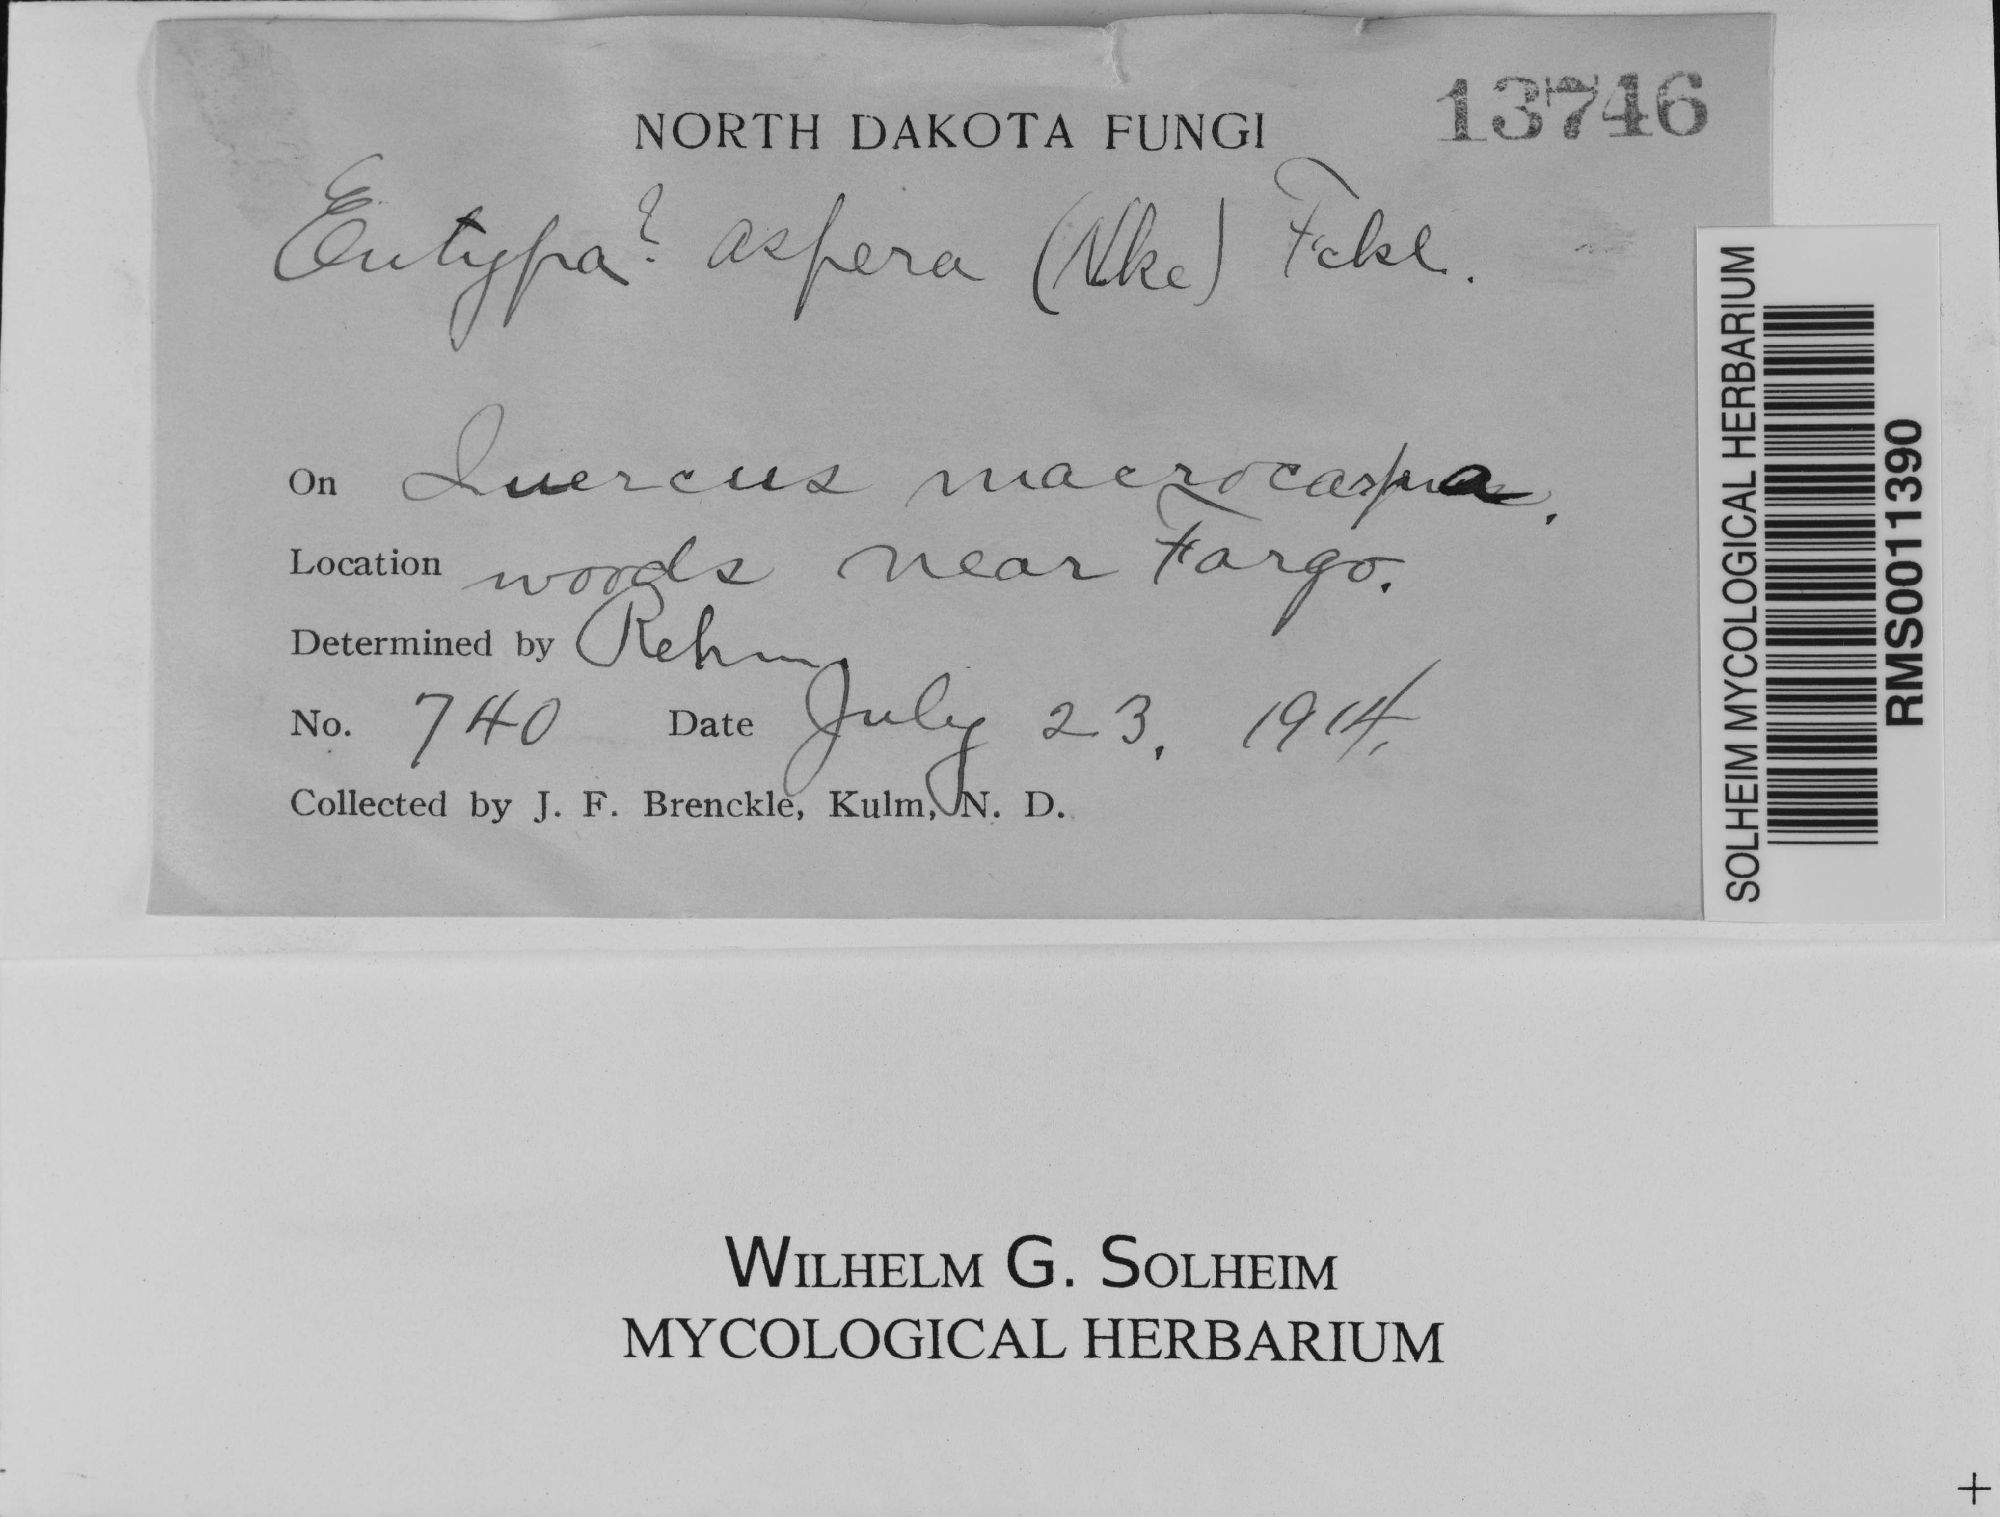 NORTH DAKOTA FUNGI
13746
Eutypa? aspera (Nke) Fckl.
On Quercus macrocarpa.
Location woods near Fargo.
Determined by Rehm.
No. 740 Date July 23, 1914.
Collected by J. F. Brenckle, Kulm, N. D.
SOLHEIM MYCOLOGICAL HERBARIUM
RMS0011390
WILHELM G. SOLHEIM
MYCOLOGICAL HERBARIUM